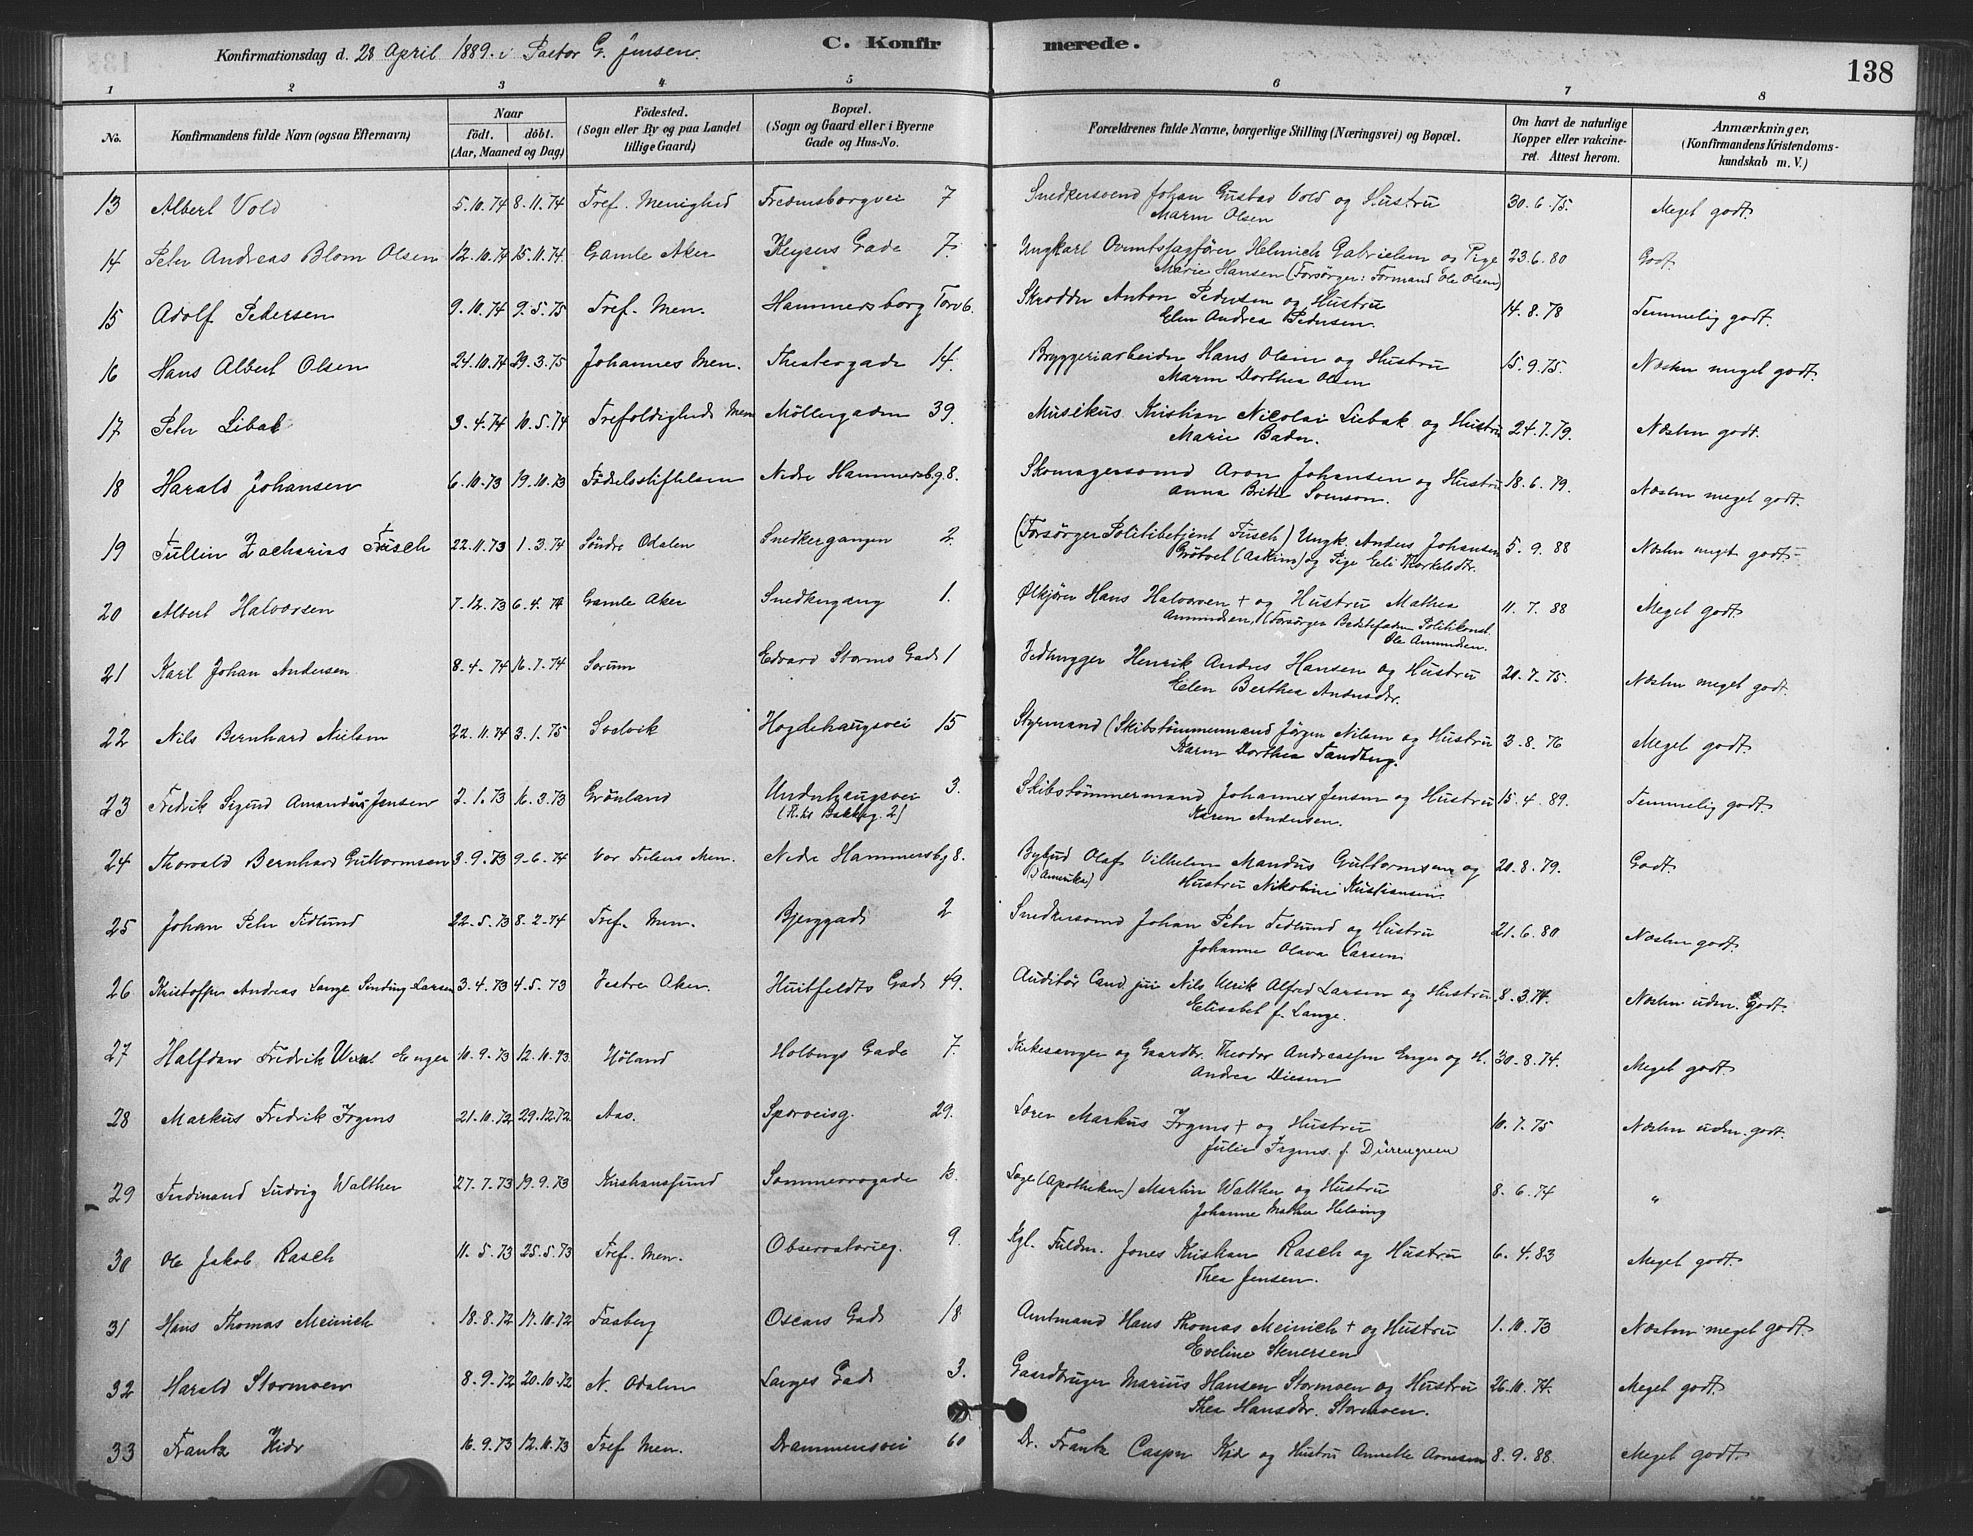 Konfirmationsdag d. 28 April 1889. i Pastor G. Jensen.
C. Konfirmerede.
138
1 2 3 4 5 6 7 8
No.
Konfirmandens fulde Navn (ogsaa Efternavn)
Naar
født. døbt.
(Aar, Maaned og Dag)
Fødested.
(Sogn eller By og paa Landet
tillige Gaard)
Bopæl.
(Sogn og Gaard eller i Byerne
Gade og Hus-No.
Forældrenes fulde Navne, borgerlige Stilling (Næringsvei) og Bopæl.
Om havt de naturlige
Kopper eller vakcine-
ret. Attest herom.
Anmærkninger.
(Konfirmandens Kristendoms-
kundskab m. V.)
13 Albert Vold 5.10.74 8.11.74 Tref. Menighed Fredensborgvei 7 Snedkersvend Johan Gustav Vold og Hustru 30.6.75. Meget godt.
Maren Olsen
14 Peter Andreas Blom Olsen 12.10.74 15.11.74. Gamle Aker Keysers Gade 7. Ungkarl Helmich Gabrielsen og Pige 23.6.80 Godt.
Marie Hansen (Forsørger: Formand Ole Olsen)
15 Adolf Pedersen 9.10.74 9.5.75 Tref. Men. Hammersborg Torv 6. Skrædder Anton Pedersen og Hustru 14.8.78 Temmelig godt.
Elen Andrea Pedersen.
16 Hans Albert Olsen 24.10.74 29.3.75 Johannes Men. Theatergade 14. Bryggeriarbeider Hans Olsen og Hustru 15.9.75. Næsten meget godt.
Maren Dorthea Olsen
17 Peter Libak 3.4.74 10.5.74 Trefoldigheds Men Møllergaden 39. Musikus Kristian Nicolai Liebak og Hustru 24.7.79. Næsten godt.
Marie Bader.
18 Harald Johansen 6.10.73 19.10.73 Fødselsstiftelsen Nedre Hammersbg. 8. Skomagersvend Aron Johansen og Hustru 18.6.79. Næsten meget godt.
Anna Britte Svenson.
19 Tullin Zacharias Fusch 22.11.73 1.3.74 Søndre Odalen Snedkergangen 2. (Forsørger Politibetjent Fusch) Ungk. Anders Johansen 5.9.88 Næsten meget godt.
Grøtvet (Askim) og Pige Eli Thorkelsdtr.
20 Albert Halvorsen 7.12.73 6.4.74 Gamle Aker Snedkergang 1. Ølkjører Hans Halvorsen + og Hustru Mathea 11.7.88 Meget godt.
Amundsen, (Forsørger Bedstefaderen Politikonst.
Ole Amundsen.
21 Karl Johan Andersen 8.4.74 16.7.74 Sørum Edvard Storms Gade 1 Vedhugger Henrik Andres Hansen og Hustru 20.7.75. Næsten meget godt.
Elen Berthea Andersdtr.
22 Nils Bernhard Nielsen 22.11.74 3.1.75 Svelvik Hegdehaugsvei 15 Styrmand (Skibstømmermand Jørgen Nilsen og Hustru 3.8.76 Meget godt.
Karen Dorthea Sandberg.
23 Fredrik Sigurd Amandus Jensen 2.1.73 16.3.73 Grønland Underhaugsvei 3. Skibstømmermand Johannes Jensen og Hustru 15.4.89. Temmelig godt.
Karen Andersen.
24 Thorvald Bernhard Guttormsen 3.9.73 9.6.74 Vor Frelsers Men. Nedre Hammersbg 8. Bybud Olaf Vilhelm Mandus Guttormsen og 20.8.79. Godt.
(i Amerika) Hustru Nikoline Kristiansen.
25 Johan Peter Fedlund 22.5.73 8.2.74 Tref. Men. Bjerggade 2 Snedkersvend Johan Peter Fedlund og Hustru 21.6.80 Næsten godt.
Johanne Olava Larsen.
26 Kristoffer Andreas Lange Sinding-Larsen 3.4.73 4.5.73 Vestre Aker. Huitfeldts Gade 49. Auditør Cand. jur. Nils Ulrik Alfred Larsen og Hustru 8.3.74. Næsten udm. Godt.
Elisabet f. Lange.
27 Halfdan Fredrik Enger 10.9.73 12.10.73. Høland Holbergs Gade 7. Kirkesanger og Gaardbr. Theodor Andreassen Enger og H. 30.8.74. Meget godt.
Andrea Diesen
28 Markus Fredrik Irgens 21.10.72 29.12.72 Aas. Sporveisg. 29. Lærer Markus Irgens + og Hustru 10.7.75 Næsten udm. godt.
Julie Irgens. f. Dürengreen
29 Ferdinand Ludvig Walther 27.7.73 19.9.73 Kristiansund Sommerrogade 13. Læge (Apotheker) Martin Walther og Hustru 8.6.74 "
Johanne Mathea Helsing
30 Ole Jakob Rasch 11.5.73 25.5.73 Tref. Men. Observatorieg. 9. Kgl. Fuldm. Jones Kristian Rasch og Hustru 6.4.83 Meget godt.
Thea Jensen.
31 Hans Thomas Meinich 18.8.72 17.10.72 Faaberg Oscars Gade 18 Amtmand Hans Thomas Meinich + og Hustru 1.10.73 Næsten meget godt.
Eveline Stenersen
32 Harald Stormoen 8.9.72 20.10.72 N. Odalen Langes Gade 3. Gaardbruger Marius Hansen Stormoen og Hustru 26.10.74. Meget godt.
Thea Hansdtr. Stormoen.
33 Frantz Kiær 16.9.73 12.10.73 Tref. Men. Drammensvei 60 Dr. Frantz Casper Kiær og Hustru Annette Arnesen 8.9.88. Meget godt.